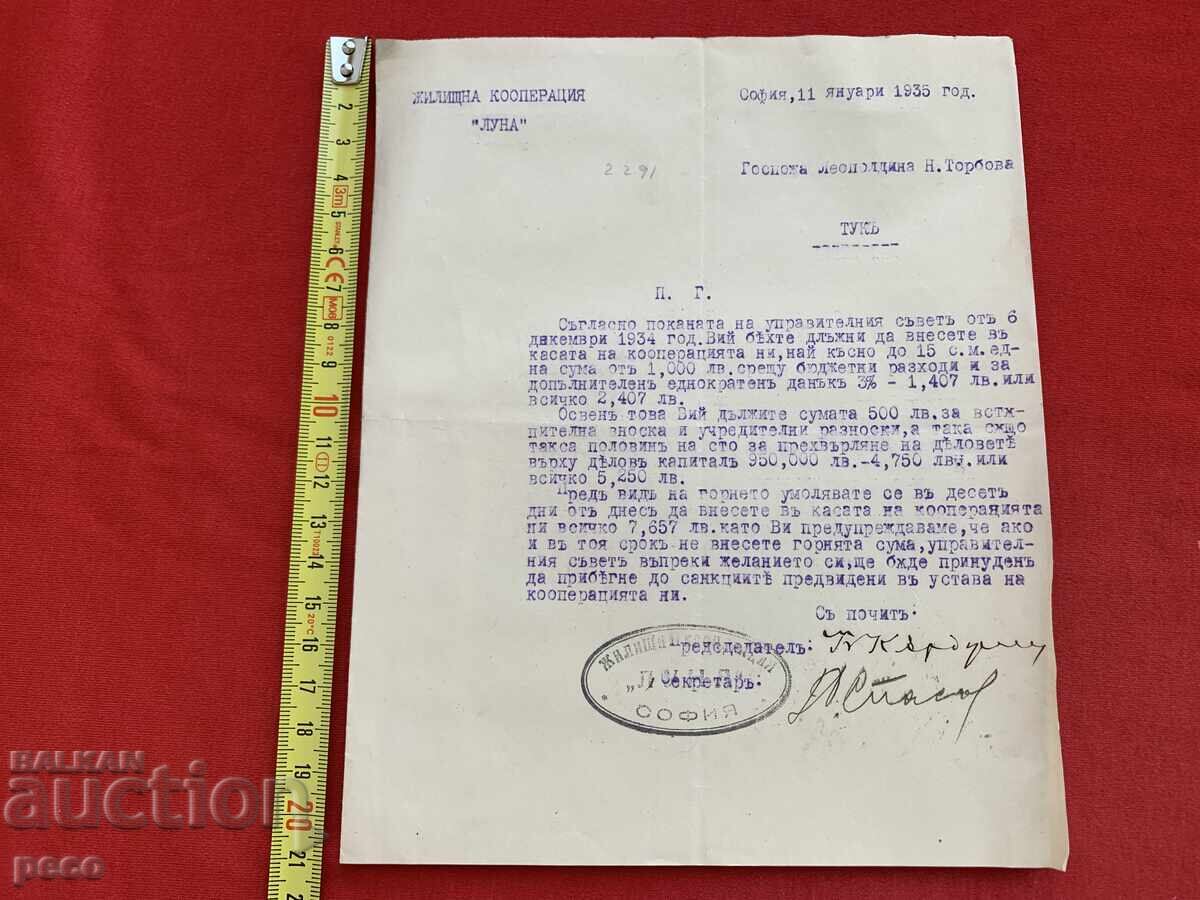 ЖИЛИЩНА КООПЕРАЦИЯ
"ЛУНА"
София, 11 януари 1935 год.
2 2 91
Госпожа Леополдина Н. Торбова
ТУКЪ
П. Г.
Съгласно поканата на управителния съветъ отъ 6
декември 1934 год. Вий бѣхте длъжни да внесете въ
касата на кооперацията ни, най късно до 15 с.м. ед-
на сума отъ 1,000 лв. срещу бюджетни разходи и за
допълнителенъ еднократенъ данъкъ 3% - 1,407 лв. или
всичко 2,407 лв.
Освенъ това Вий дължите сумата 500 лв. за встѫ-
пителна вноска и учредителни разноски, а така сѫщо
такса половинъ на сто за прехвърляне на дѣловетѣ
върху дѣловъ капиталъ 950,000 лв.-4,750 лв. или
всичко 5,250 лв.
Предъ видъ на горнето умолявате се въ десетъ
дни отъ днесъ да внесете въ касата на кооперацията
ни всичко 7,657 лв. като Ви предупреждаваме, че ако
и въ тоя срокъ не внесете горнята сума, управител-
ния съветъ въпреки желанието си, ще бѫде принуденъ
да прибѣгне до санкциитѣ предвидени въ устава на
кооперацията ни.
Съ почитъ:
Председатель:
Секретаръ:
ЖИЛИЩНА КООПЕРАЦИЯ
"ЛУНА"
СОФИЯ
BALKAN
auction
peco
2
3
4
3m
5
6
CE
7
MOB
8
0122
9
10
11
12
13
14
15
20°C
16
17
18
19
20
21